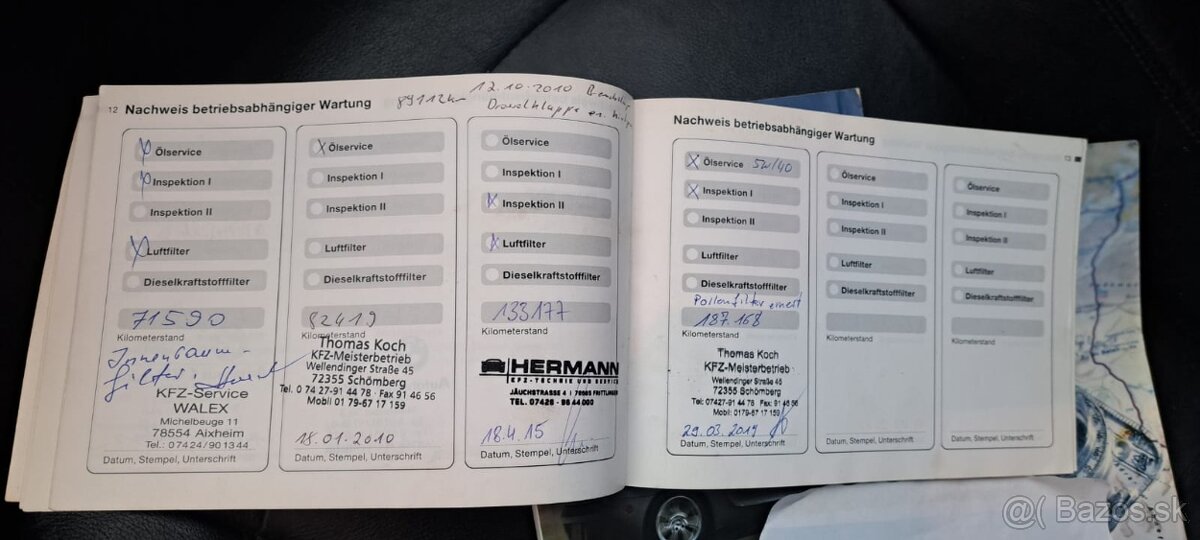 12 Nachweis betriebsabhängiger Wartung
89112km 12.10.2010
Drosselklappe
X Ölservice
X Inspektion I
Inspektion II
X Luftfilter
Dieselkraftstofffilter
71590
Kilometerstand
Innenraum-
filter
KFZ-Service
WALEX
Michelbeuge 11
78554 Aixheim
Tel.: 07424/901344
Datum, Stempel, Unterschrift
X Ölservice
Inspektion I
Inspektion II
Luftfilter
Dieselkraftstofffilter
82419
Kilometerstand
Thomas Koch
KFZ-Meisterbetrieb
Wellendinger Straße 45
72355 Schömberg
Tel. 0 74 27-91 44 78 · Fax 91 46 56
Mobil 01 79-67 17 159
18.01.2010
Datum, Stempel, Unterschrift
Ölservice
Inspektion I
X Inspektion II
X Luftfilter
Dieselkraftstofffilter
133177
Kilometerstand
HERMANN
KFZ-TECHNIK UND SERVICE
JÄUCHSTRASSE 4 | 78665 FRITTLINGEN
TEL. 07426 - 96 44 000
18.4.15
Datum, Stempel, Unterschrift
Nachweis betriebsabhängiger Wartung
13
X Ölservice 5W/40
X Inspektion I
Inspektion II
Luftfilter
Dieselkraftstofffilter
Pollenfilter ernert
187.168
Kilometerstand
Thomas Koch
KFZ-Meisterbetrieb
Wellendinger Straße 45
72355 Schömberg
Tel: 07427-91 44 78 Fax: 91 46 56
Mobil: 0179-67 17 159
29.03.2019
Datum, Stempel, Unterschrift
Ölservice
Inspektion I
Inspektion II
Luftfilter
Dieselkraftstofffilter
Kilometerstand
Datum, Stempel, Unterschrift
Ölservice
Inspektion I
Inspektion II
Luftfilter
Dieselkraftstofffilter
Kilometerstand
Datum, Stempel, Unterschrift
@( Bazos.sk